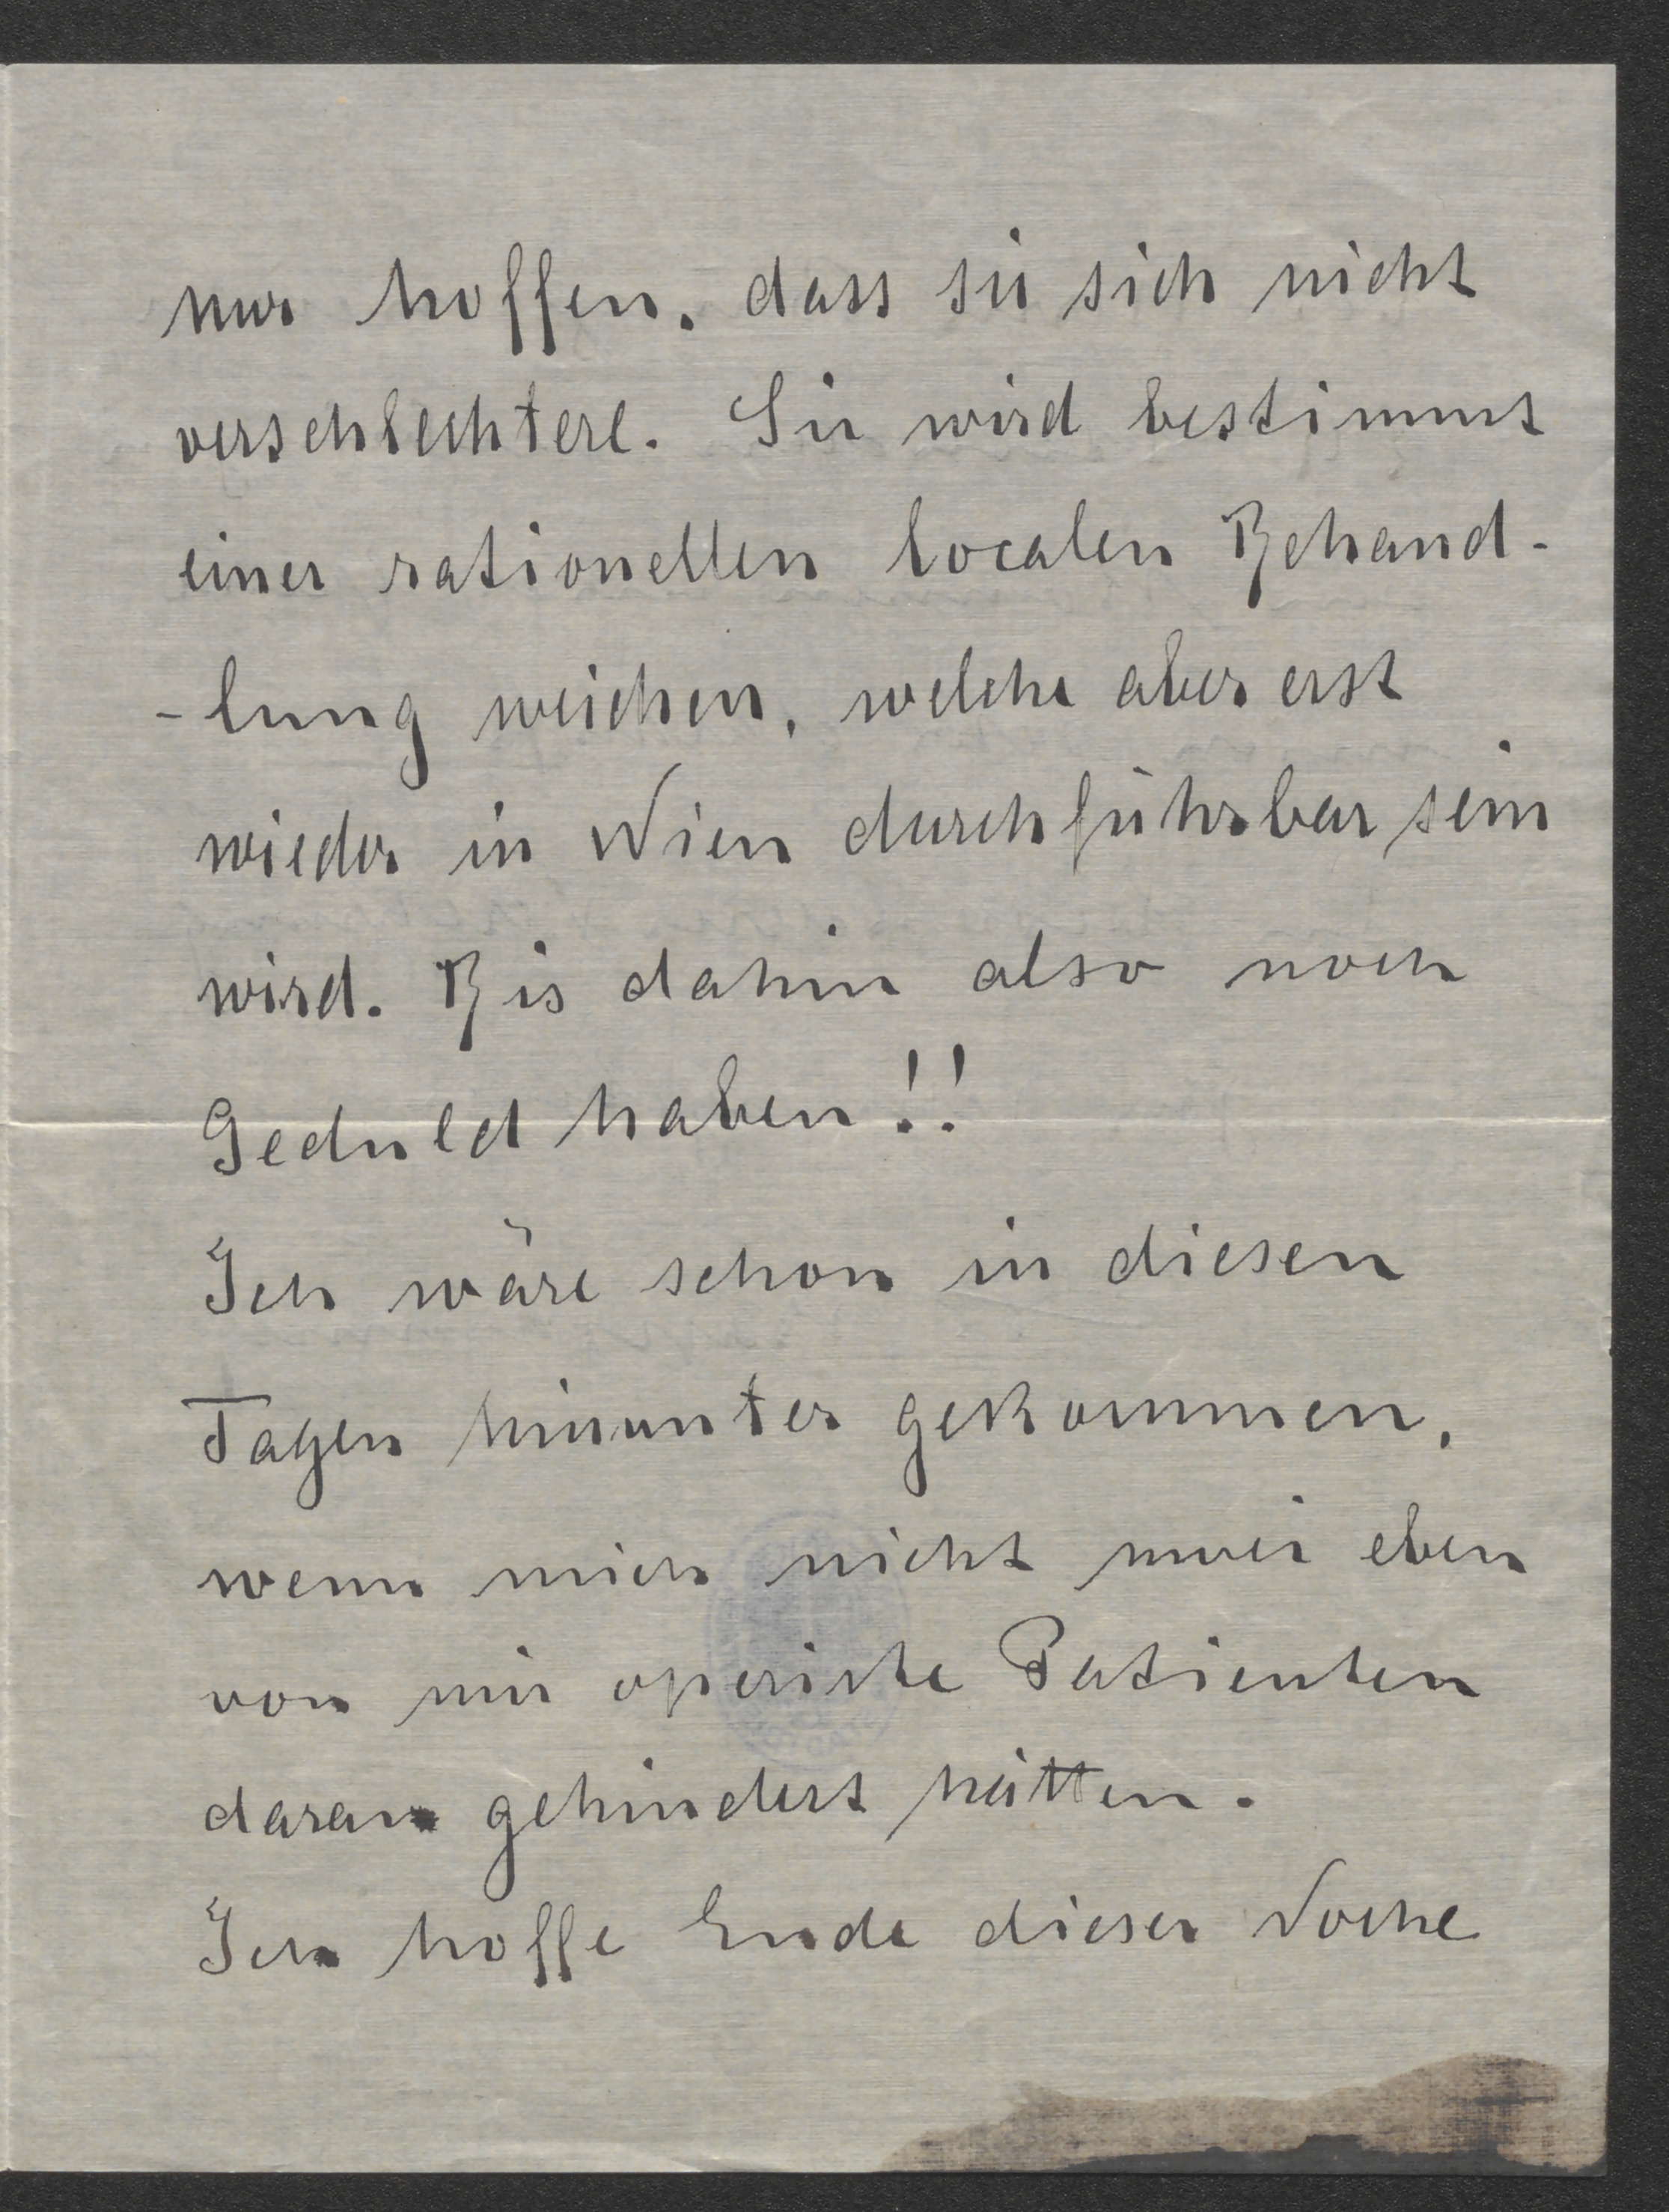 nur hoffen, dass sie sich nicht
verschlechtere. Sie wird bestimmt
einer rationellen localen Behand-
-lung weichen, welche aber erst
wieder in Wien durchführbar sein
wird. Bis dahin also noch
Geduld haben!!
Ich wäre schon in diesen
Tagen hinunter gekommen,
wenn mich nicht zwei eben
von mir operirte Patienten
daran gehindert hätten.
Ich hoffe Ende dieser Woche